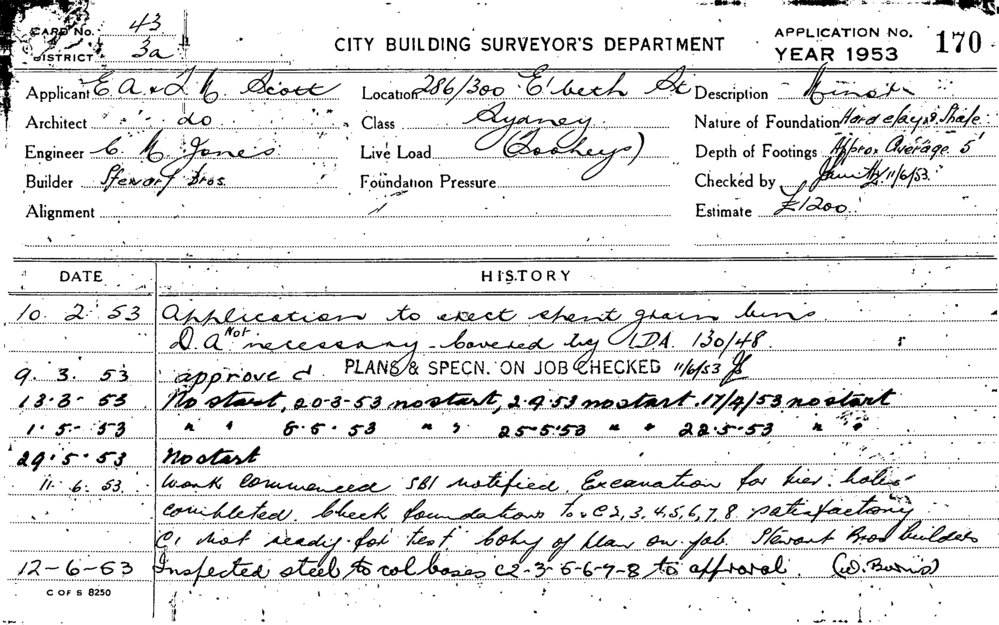 CARD No. 43
DISTRICT 3a
CITY BUILDING SURVEYOR'S DEPARTMENT
APPLICATION No. 170
YEAR 1953
Applicant E. A. & T. M. Scott
Location 286/300 E'beth St
Description Minor
Architect " " do
Class Sydney
Nature of Foundation Hard clay & Shale
Engineer C. M. Jones
Live Load (Tooheys)
Depth of Footings Approx Average 5'
Builder Stewart Bros.
Foundation Pressure
Checked by 11/6/53
Alignment
Estimate £1200
DATE HISTORY
10. 2. 53 Application to erect spent grain bins
D.A. Not necessary - Covered by I.D.A. 130/48.
9. 3. 53 approved PLANS & SPECN. ON JOB CHECKED 11/6/53
13-3-53 No start, 20-3-53 no start, 2-4-53 no start. 17/4/53 no start
1. 5. 53 " " 8.5.53 " " 25.5.53 " " 22.5.53 " "
29.5.53 No start
11. 6. 53. Work Commenced SBI notified. Excavation for pier holes
completed. Check foundations to C2, 3. 4, 5, 6, 7, 8 satisfactory
C1 not ready for test. Copy of plan on job. Stewart Bros builders
12-6-53 Inspected steel to col bases C2-3-5-6-7-8 to approval. (W. Burns)
C OF S 8250